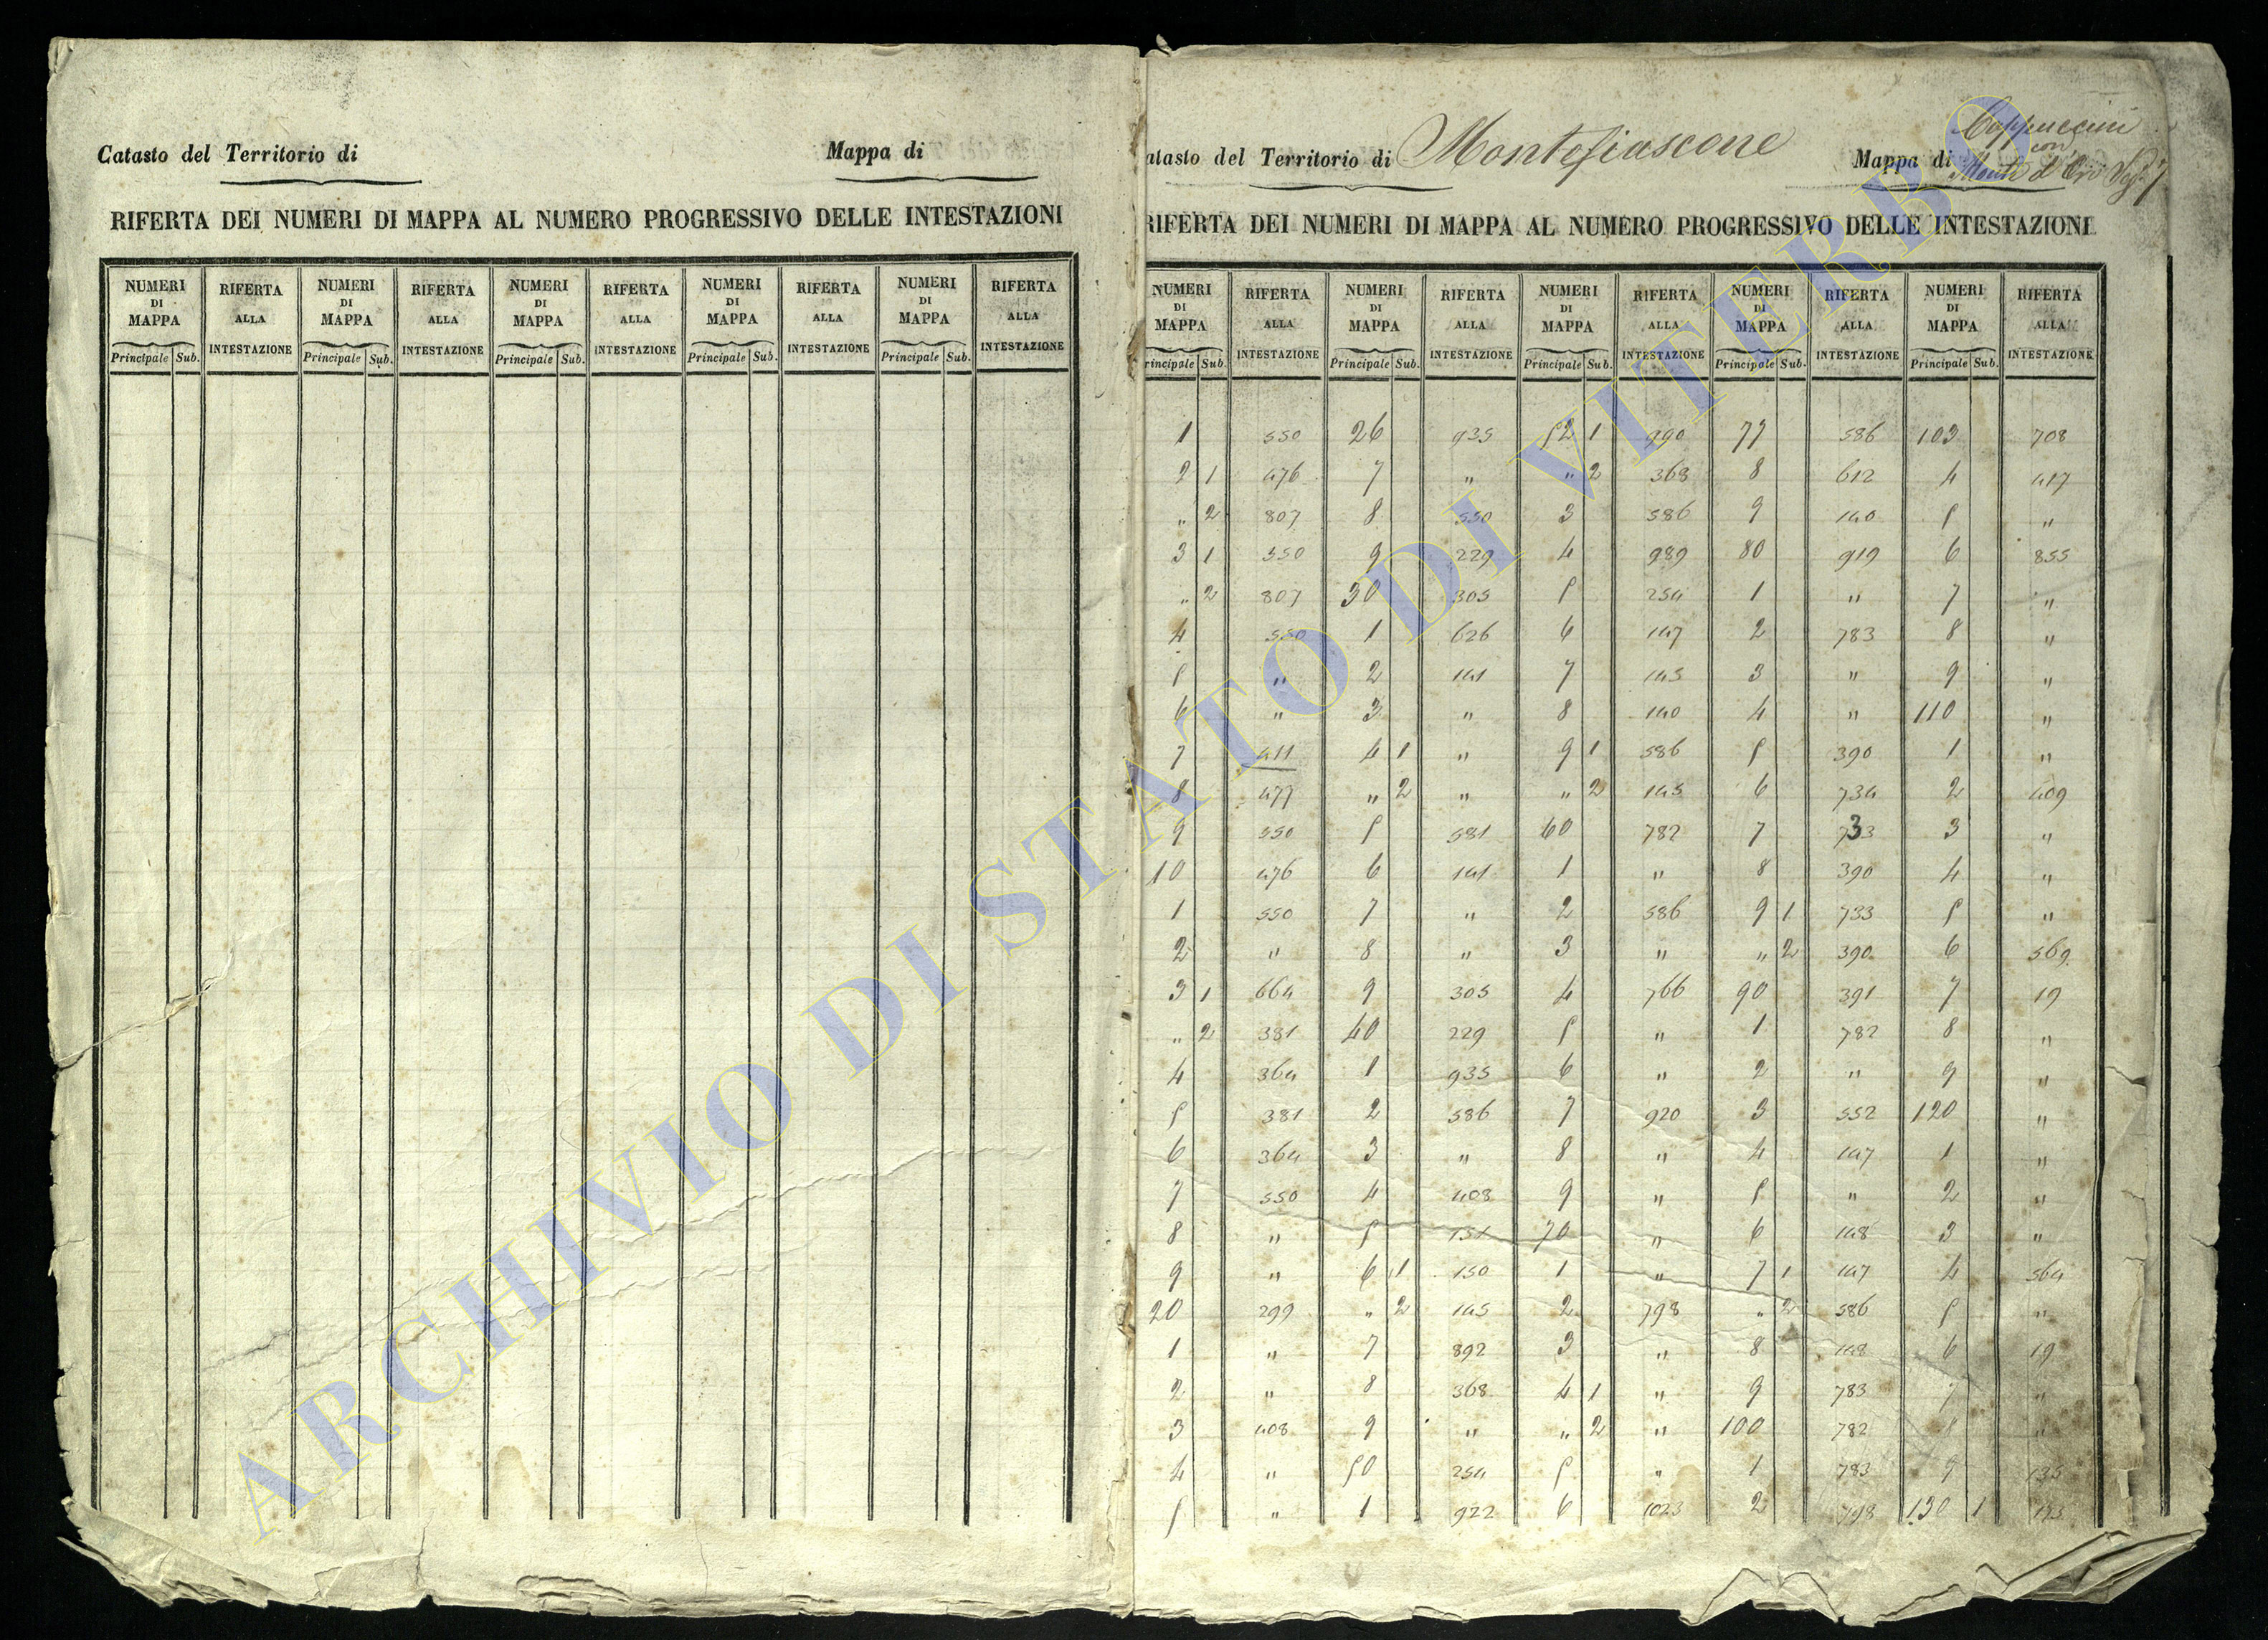 Catasto del Territorio di Mappa di
RIFERTA DEI NUMERI DI MAPPA AL NUMERO PROGRESSIVO DELLE INTESTAZIONI
NUMERI DI MAPPA RIFERTA ALLA INTESTAZIONE NUMERI DI MAPPA RIFERTA ALLA INTESTAZIONE NUMERI DI MAPPA RIFERTA ALLA INTESTAZIONE NUMERI DI MAPPA RIFERTA ALLA INTESTAZIONE NUMERI DI MAPPA RIFERTA ALLA INTESTAZIONE
Principale Sub. Principale Sub. Principale Sub. Principale Sub. Principale Sub.
atasto del Territorio di Montefiascone Mappa di Cappuccini
con
Monte d'Oro
RIFERTA DEI NUMERI DI MAPPA AL NUMERO PROGRESSIVO DELLE INTESTAZIONI
NUMERI DI MAPPA RIFERTA ALLA INTESTAZIONE NUMERI DI MAPPA RIFERTA ALLA INTESTAZIONE NUMERI DI MAPPA RIFERTA ALLA INTESTAZIONE NUMERI DI MAPPA RIFERTA ALLA INTESTAZIONE NUMERI DI MAPPA RIFERTA ALLA INTESTAZIONE
rincipale Sub. Principale Sub. Principale Sub. Principale Sub. Principale Sub.
1 550 26 935 52 1 990 77 586 103 708
2 1 476 7 " " 2 368 8 612 4 417
" 2 807 8 550 3 586 9 140 5 "
3 1 550 9 229 4 989 80 919 6 855
" 2 807 30 305 5 254 1 " 7 "
4 550 1 626 6 147 2 783 8 "
5 " 2 141 7 145 3 " 9 "
6 " 3 " 8 140 4 " 110 "
7 411 4 1 " 9 1 586 5 390 1 "
8 477 " 2 " " 2 145 6 734 2 409
9 550 5 581 60 782 7 733 3 "
10 476 6 141 1 " 8 390 4 "
1 550 7 " 2 586 9 1 733 5 "
2 " 8 " 3 " " 2 390 6 569
3 1 664 9 305 4 766 90 391 7 19
" 2 381 40 229 5 " 1 782 8 "
4 364 1 935 6 " 2 " 9 "
5 381 2 586 7 920 3 552 120 "
6 364 3 " 8 " 4 147 1 "
7 550 4 408 9 " 5 " 2 "
8 " 5 151 70 " 6 148 3 "
9 " 6 1 150 1 " 7 1 147 4 564
20 299 " 2 145 2 798 " 2 586 5 "
1 " 7 892 3 " 8 148 6 19
2 " 8 368 4 1 " 9 783 7 "
3 408 9 " " 2 " 100 782 8 "
4 " 50 254 5 " 1 783 9 135
5 " 1 922 6 1023 2 798 130 1
ARCHIVIO DI STATO DI VITERBO